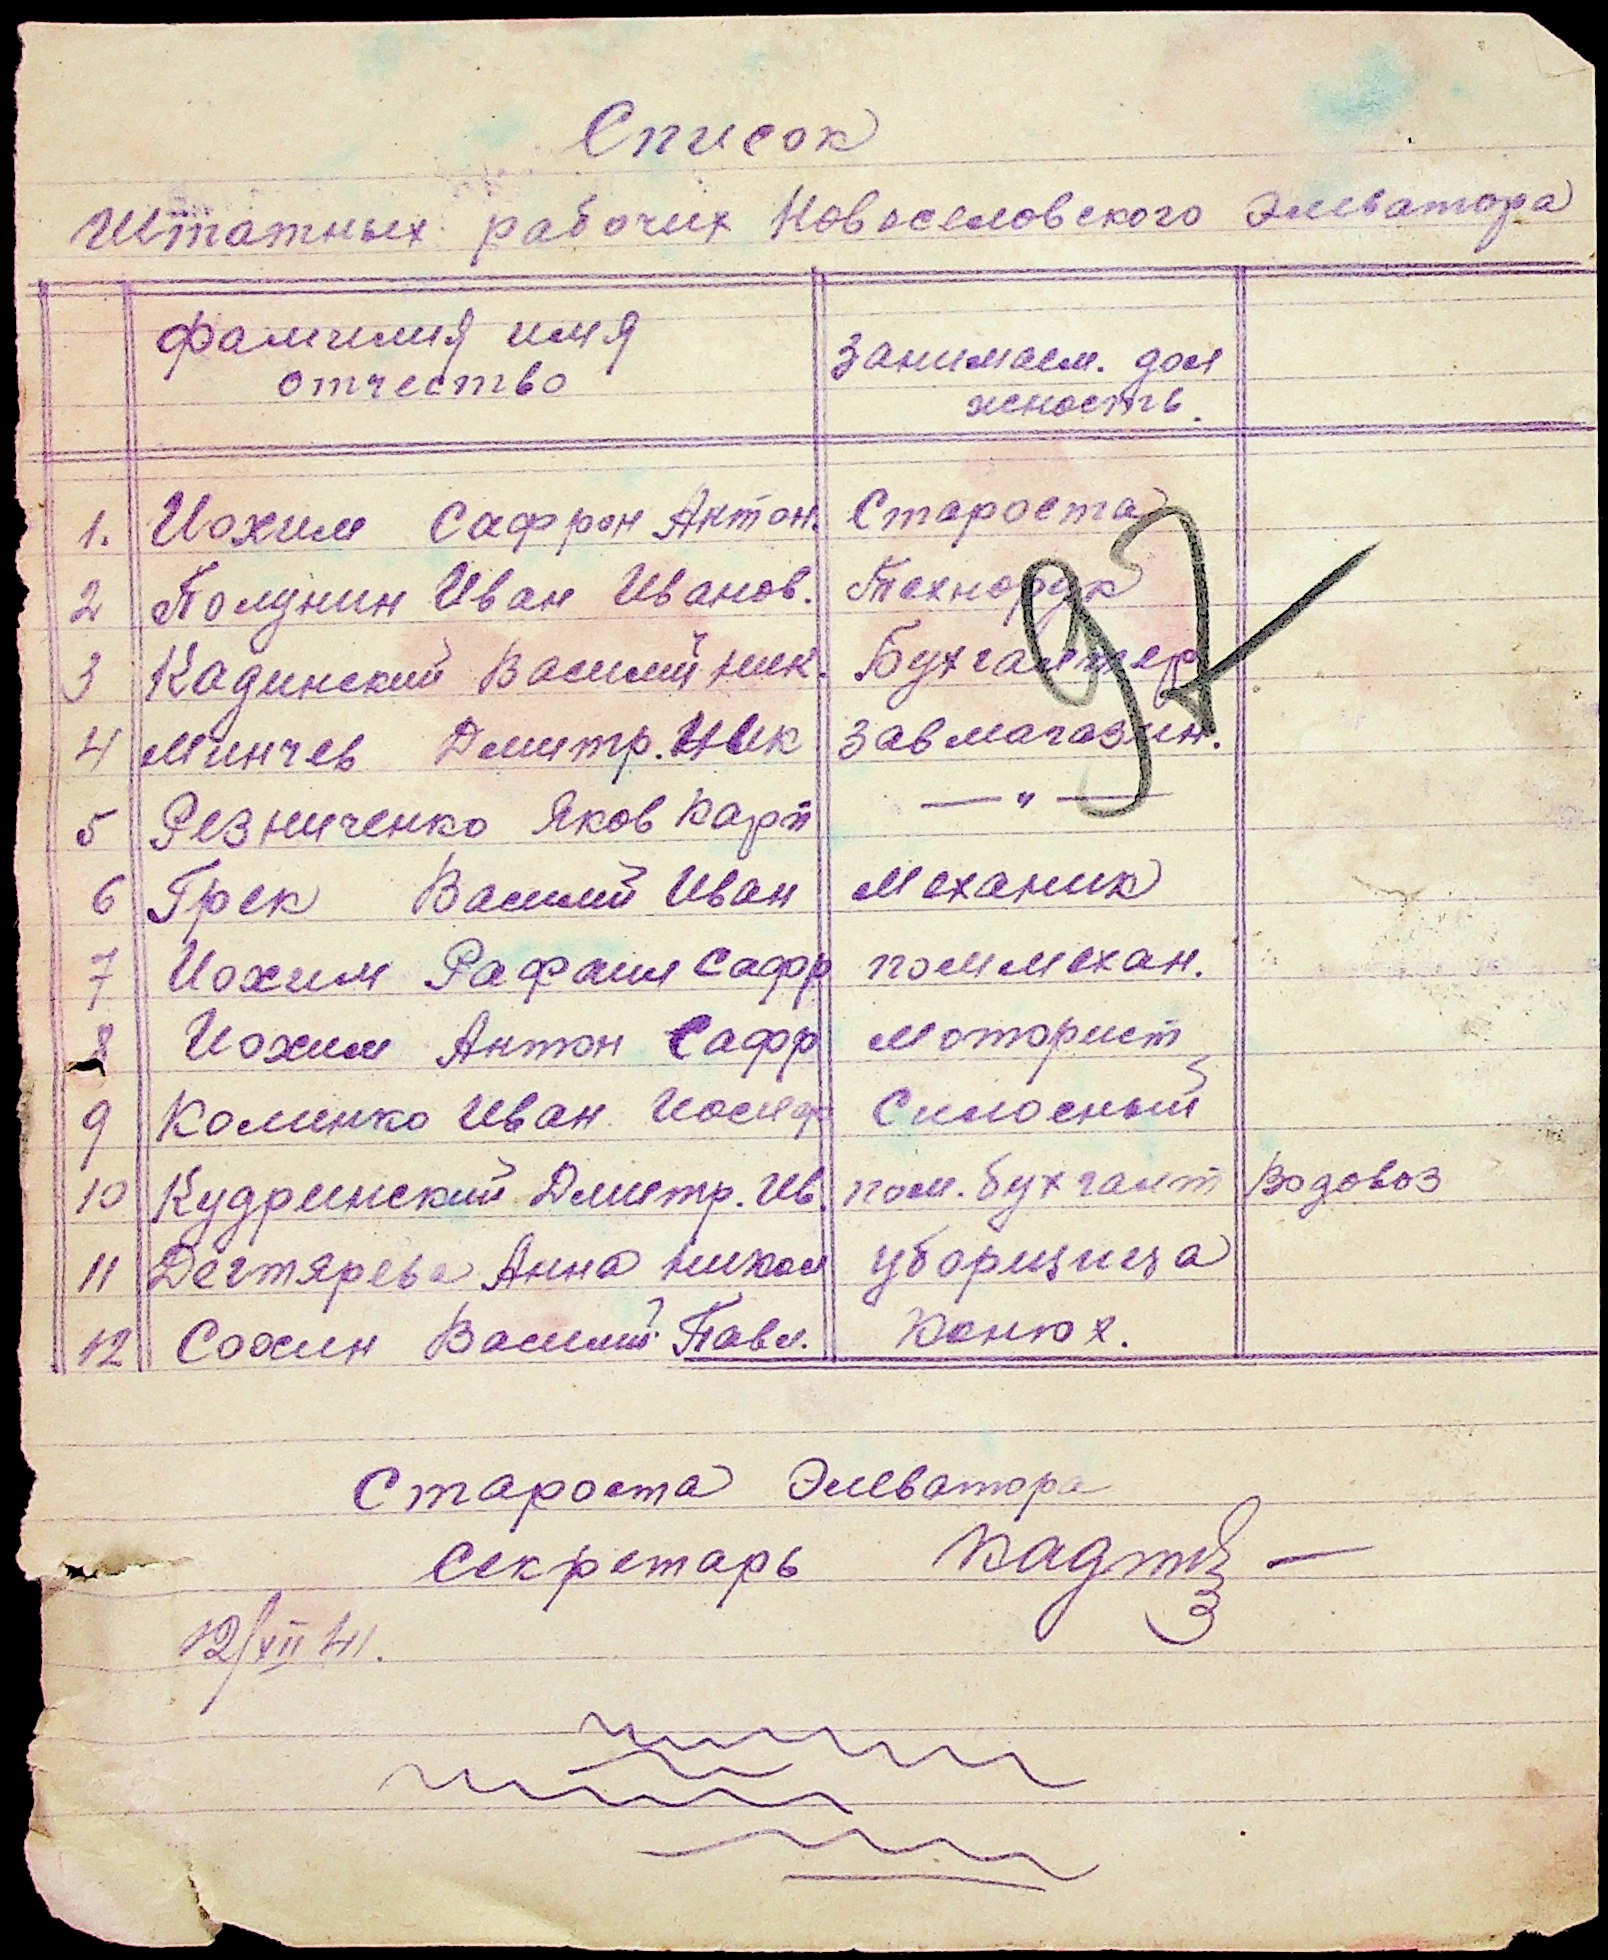 Список
Штатных рабочих Новоселовского Элеватора
Фамилия имя отчество Занимаем. дол жность.
1. Иохим Сафрон Антон. Староста
2 Полунин Иван Иванов. Технорук
3 Кадинский Василий Ник. Бухгалтер
4 Минчев Дмитр. Ник Завмагазин.
5 Резниченко Яков Карп — " —
6 Грек Василий Иван Механик
7 Иохим Рафаил Сафр поммехан.
8 Иохим Антон Сафр Моторист
9 Колинко Иван Иосиф Силосный
10 Кудринский Дмитр. Ив. пом. бухгалт Водовоз
11 Дегтярева Анна Никол уборщица
12 Сохин Василий Павл. Конюх.
97
Староста Элеватора
Секретарь
12/XII 41.